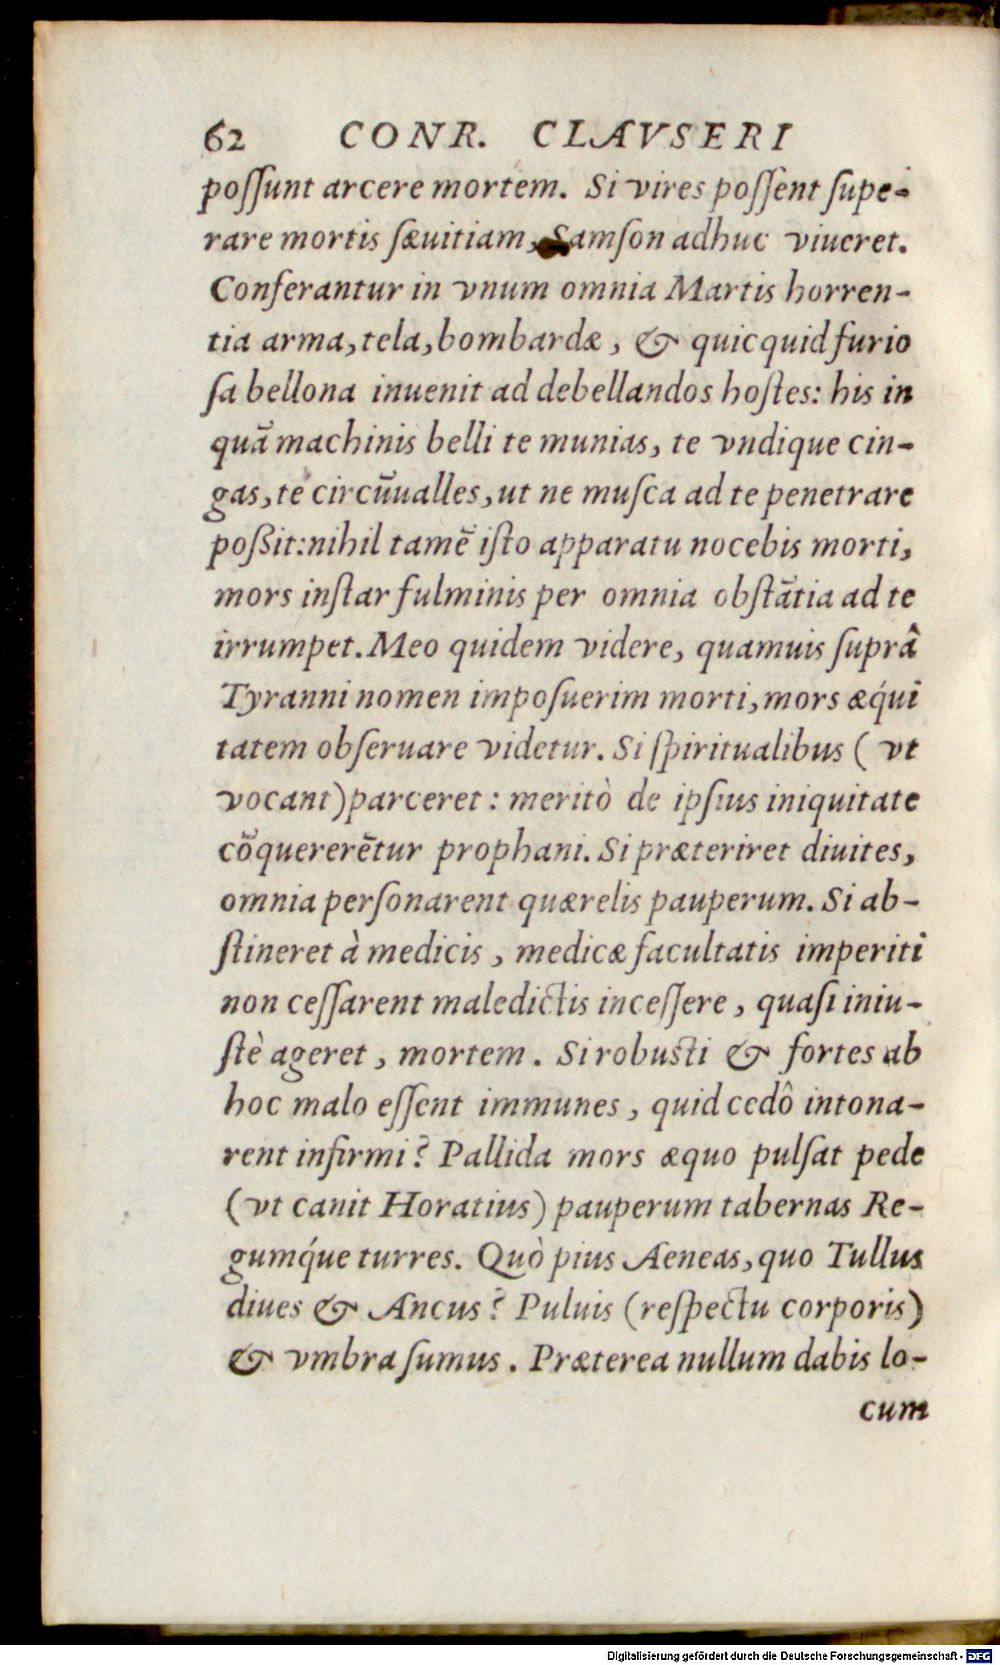 62 CONR. CLAVSERI
poſſunt arcere mortem. Si vires poſſent ſupe-
rare mortis ſæuitiam, Samſon adhuc viueret.
Conferantur in vnum omnia Martis horren-
tia arma, tela, bombardæ, & quicquid furio
ſa bellona inuenit ad debellandos hoſtes: his in
quā machinis belli te munias, te vndique cin-
gas, te circūualles, ut ne muſca ad te penetrare
poßit: nihil tamē iſto apparatu nocebis morti,
mors inſtar fulminis per omnia obſtātia ad te
irrumpet. Meo quidem videre, quamuis ſuprâ
Tyranni nomen impoſuerim morti, mors æq́ui
tatem obſeruare videtur. Si ſpiritualibus (vt
vocant) parceret: meritò de ipſius iniquitate
cōquererētur prophani. Si præteriret diuites,
omnia perſonarent quærelis pauperum. Si ab-
ſtineret à medicis, medicæ facultatis imperiti
non ceſſarent maledictis inceſſere, quaſi iniu-
ſtè ageret, mortem. Si robusti & fortes ab
hoc malo eſſent immunes, quid cedô intona-
rent infirmi? Pallida mors æquo pulſat pede
(vt canit Horatius) pauperum tabernas Re-
gumq́ue turres. Quò pius Aeneas, quo Tullus
diues & Ancus? Puluis (reſpectu corporis)
& vmbra ſumus. Præterea nullum dabis lo-
cum
Digitalisierung gefördert durch die Deutsche Forschungsgemeinschaft - DFG